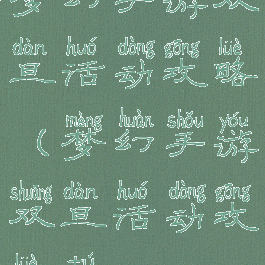 梦幻手游双
dàn huó dòng gōng lüè
旦活动攻略
mèng huàn shǒu yóu
(梦幻手游
shuāng dàn huó dòng gōng
双旦活动攻
lüè